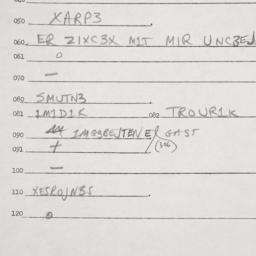 050 XARP3
060 ER ZIXC3X M1T MIR UNC3EJ
061 O
070 —
080 SMUTN3
081 1M1D1K 082 TROUR1K
090 1MG9BEJTENER GAST
091 + (306)
100 —
110 XESROJNBS
120 O